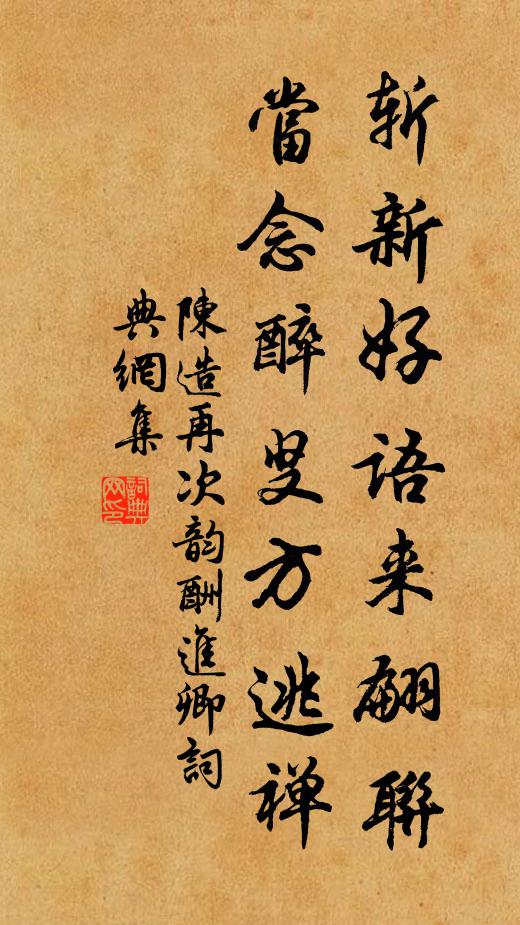 斩新好语来翩聯
當念醉叟方逃禅
陳造再次韵酬進卿詞
典網集
詞典
网印